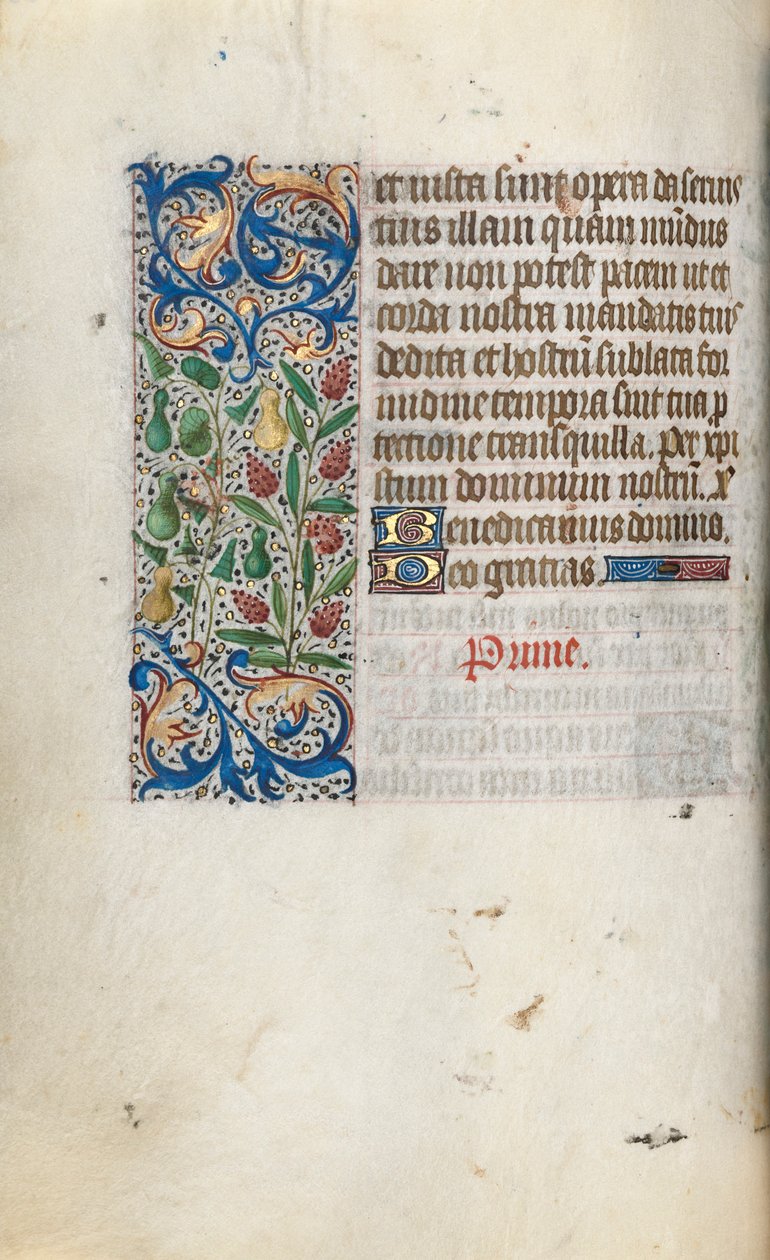 et iusta sunt opera da seruis
tuis illam quam mūdus
dare non potest pacem ut et
corda nostra mandatis tuis
dedita et hostiū sublata for
midine tempora sint tua p
tectione transquilla. Per xpi
stum dominum nostrū. 
Benedicamus domino.
Deo gratias.
Prime.